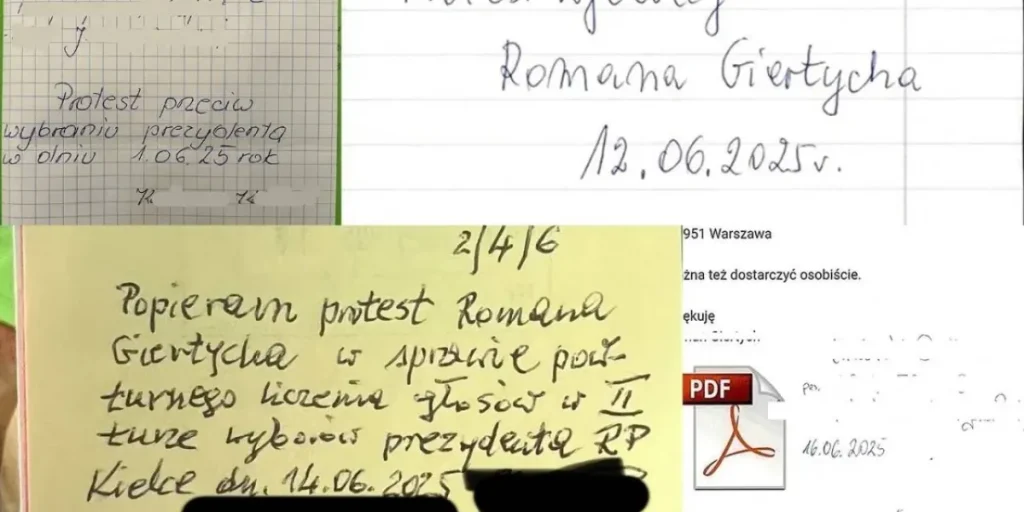 Protest przeciw
wybraniu prezydenta
w dniu 1.06.25 rok
K
Romana Giertycha
12.06.2025r.
2/4/6
Popieram protest Romana
Giertycha w sprawie pow-
turnego liczenia głosów w II
turze wyborów prezydenta RP
Kielce dn. 14.06.2025
951 Warszawa
żna też dostarczyć osobiście.
ękuję
PDF
16.06.2025